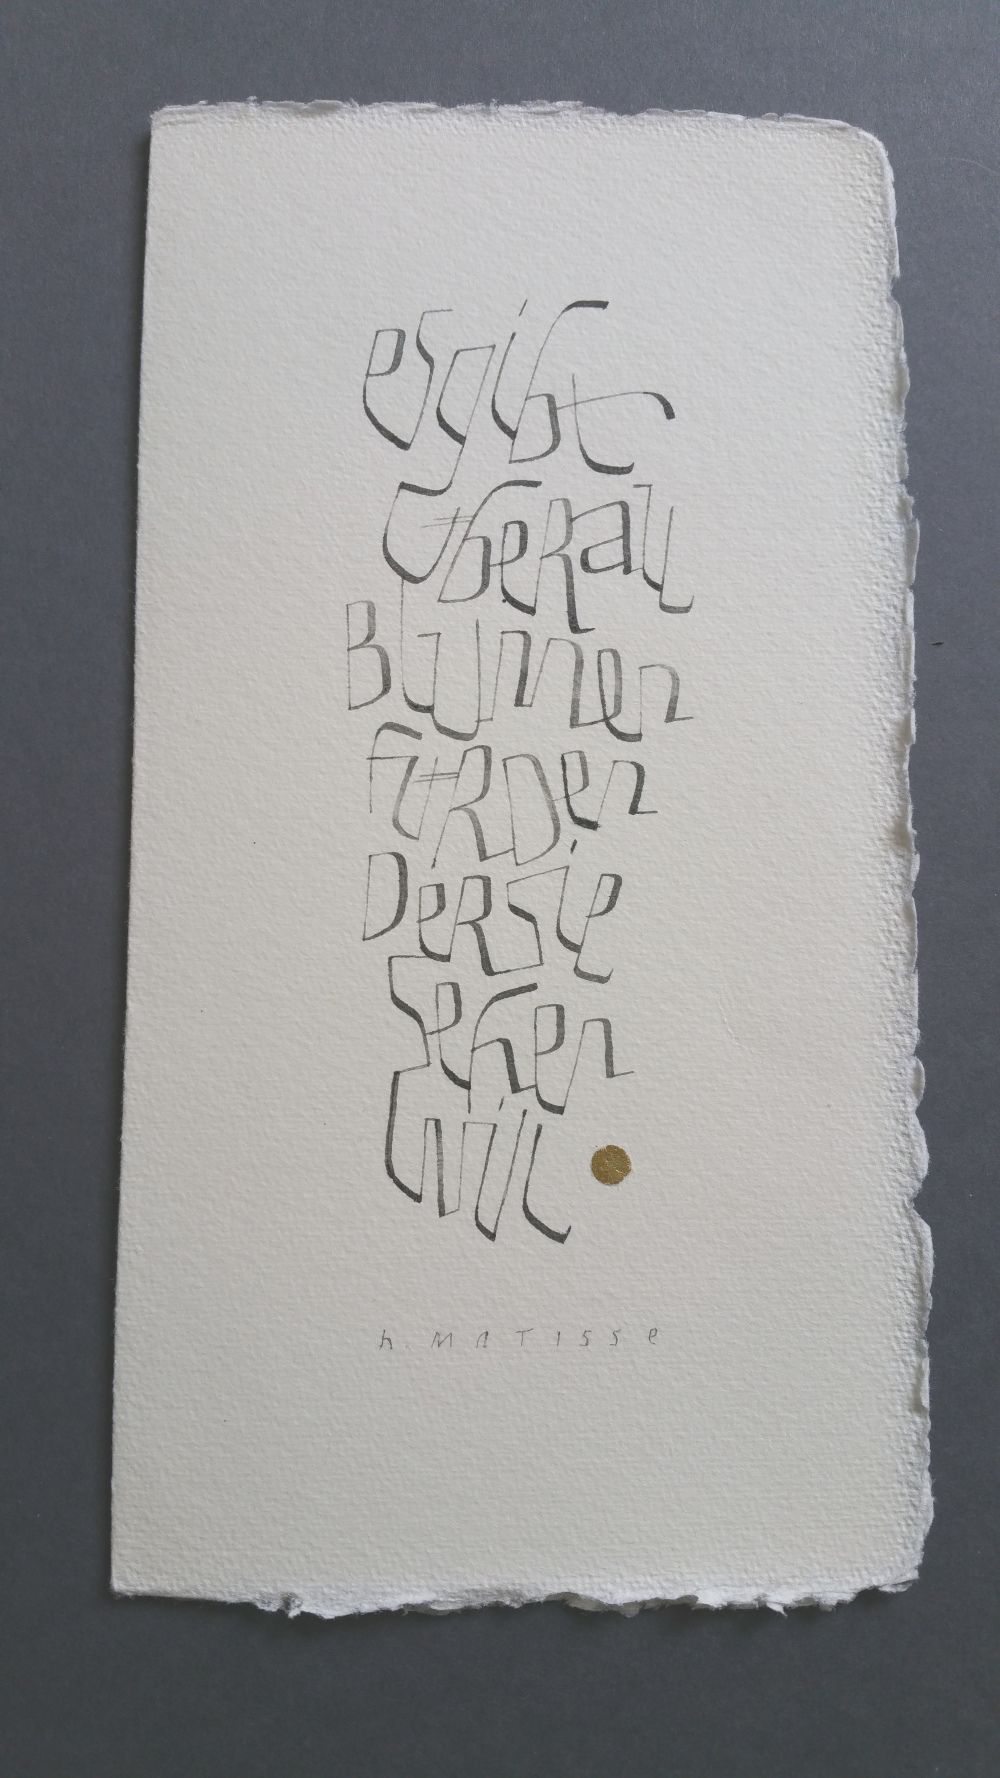 es gibt
überall
Blumen
für den
der sie
sehen
will
h. MATISSE